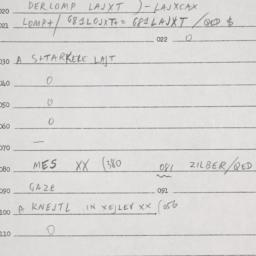 020 DERLOMP LAJXT )-LAJXCAX
021 LOMP+/ 681LOJXT+= 681LAJXT /QED $
022 0
030 A SHTARKERE LAJT
040 0
050 0
060 0
070 —
080 MES XX (380 081 ZILBER/QED
090 GAZE 091
100 A KNEJTL IN XEJLEV XX (056
110 0